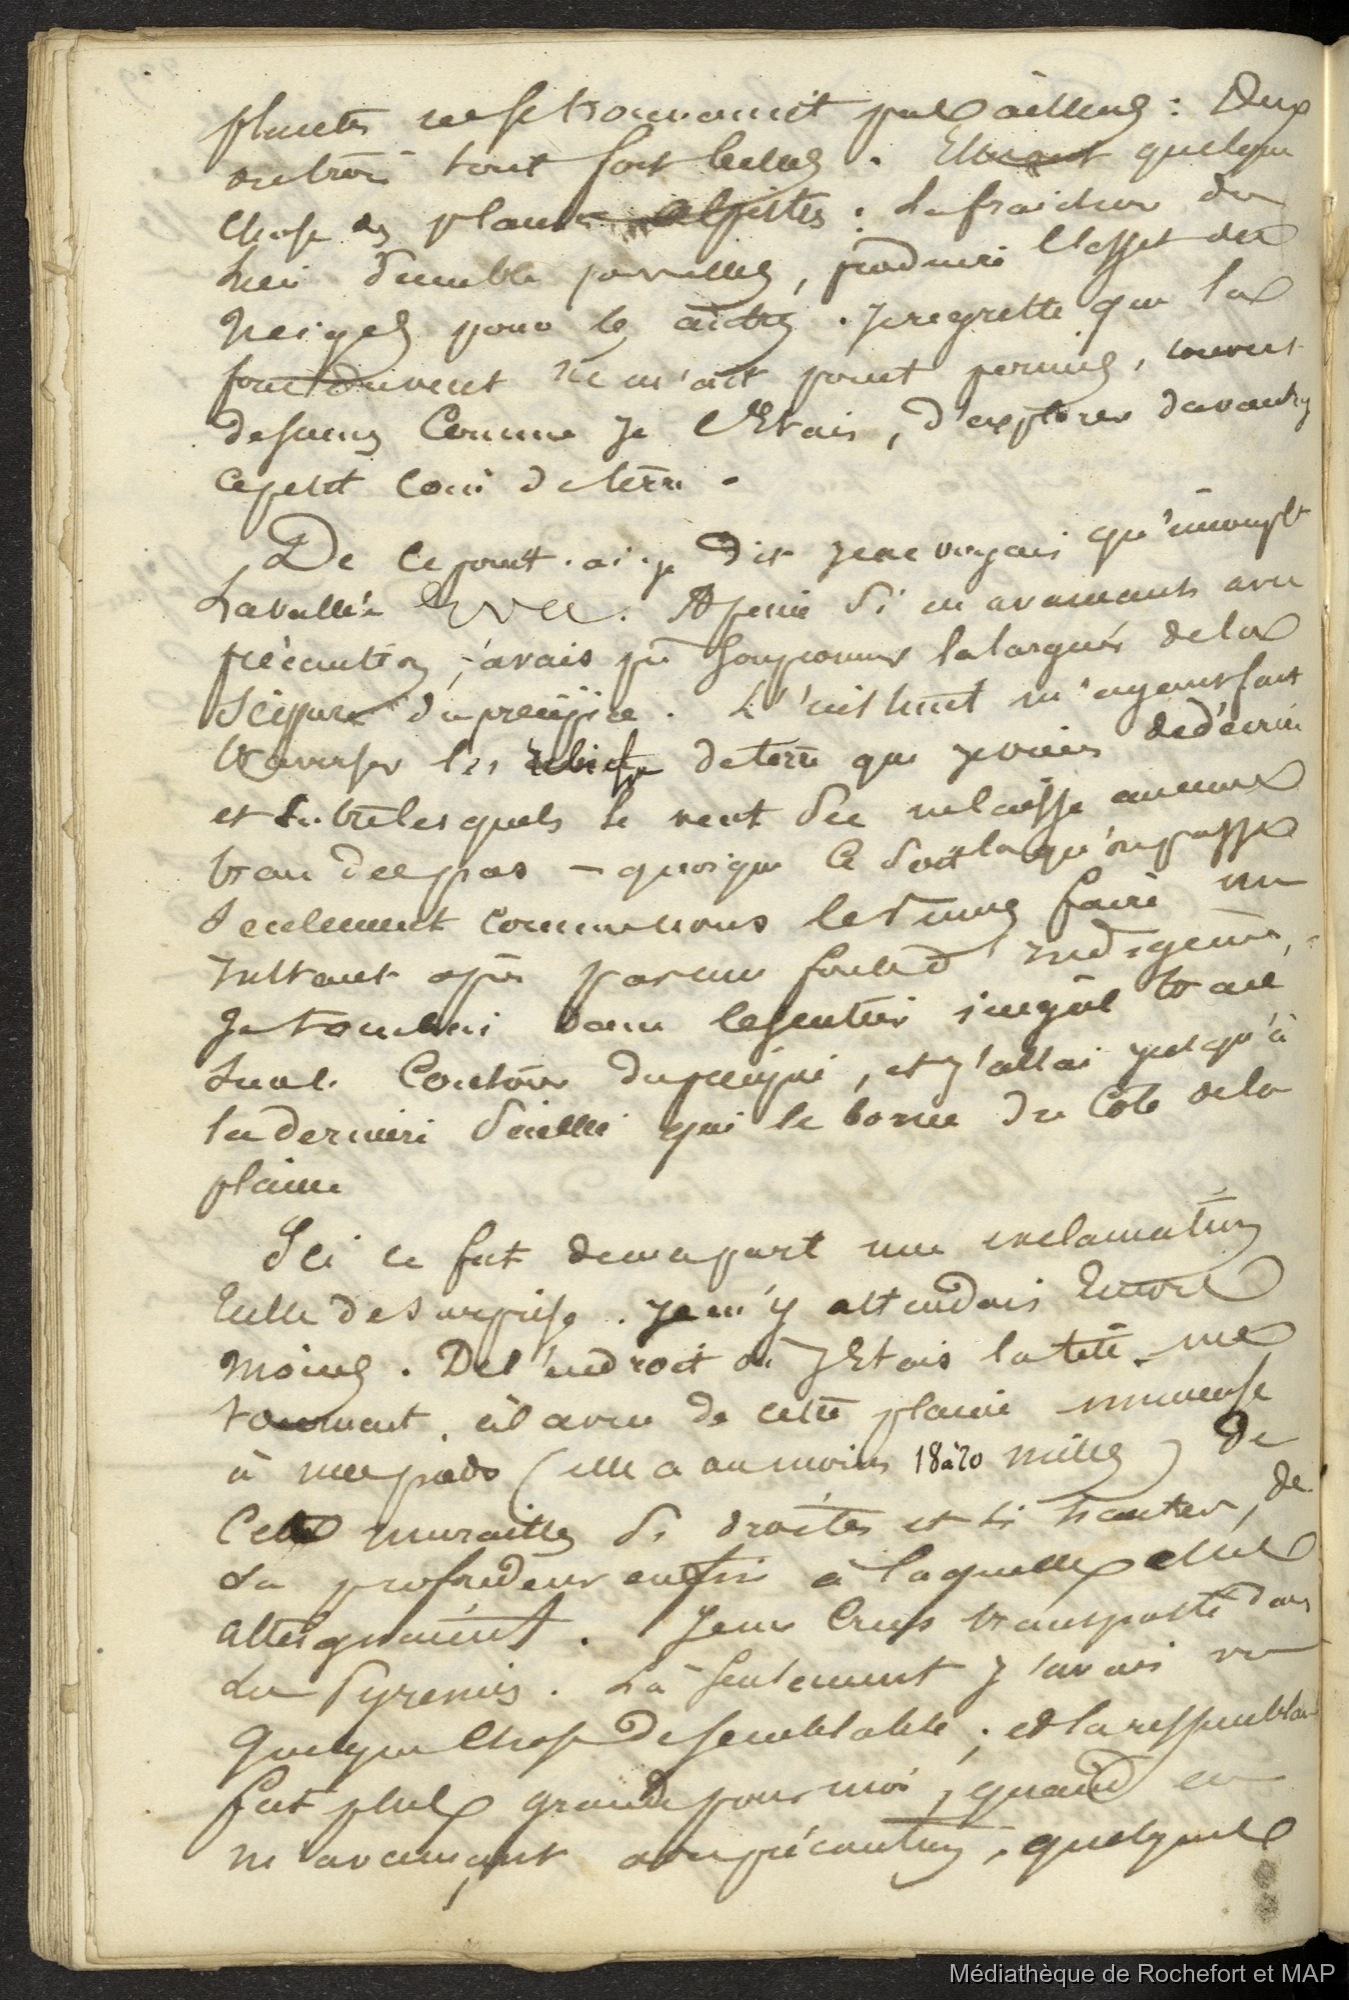 plantes ne se trouvaient pas ailleurs : Deux
entr'ois sont fort belles . Elles ont quelque
chose des plantes alpestres : La fraicheur du
lieu semble pour elles, produire l'effet des
neiges pour les autres . Je regrette que la
force du vent ne m'ait point permis, couvert
de sueur comme je l'Etais, d'explorer davantage
ce petit coin de terre .
De ce point . ai-je dit je ne voyais qu'incomplt
La vallée . A peine si en avancants avec
précaution, j'avais pu soupçonner la largeur de la
coupure du précipice . L'instinct m'ayant fait
traverser les de terre que je viens de décrire
et entre lesquels le vent sec ne laisse aucune
trace de pas – quoique ce soit là qu'on passe
seulement comme nous le vimes faire un
instant après par une foule d'indigenes,
Je tombai dans le sentier inégal tracé
sur le contour du précipice, et j'allai jusqu'à
la derniere saillie qui le borne du Coté de la
plaine
Ici ce fut de ma part une exclamation
réelle de surprise . Je m'y attendais Encore
moins . De l'endroit où J'Etais la tête me
tournait, à la vue de cette plaine immense
à mes pieds (elle a au moins 18 à 20 milles) De
Cette muraille si droite et si haute, de
la profondeur enfin à laquelle elle
atteignaient . Je me crus transporté dans
les Pyrenées . Là seulement j'avais vu
quelque chose de semblable ; et la ressemblan
fut plus grande pour moi, quand en
m'avançant avec précaution, quelques
Médiathèque de Rochefort et MAP